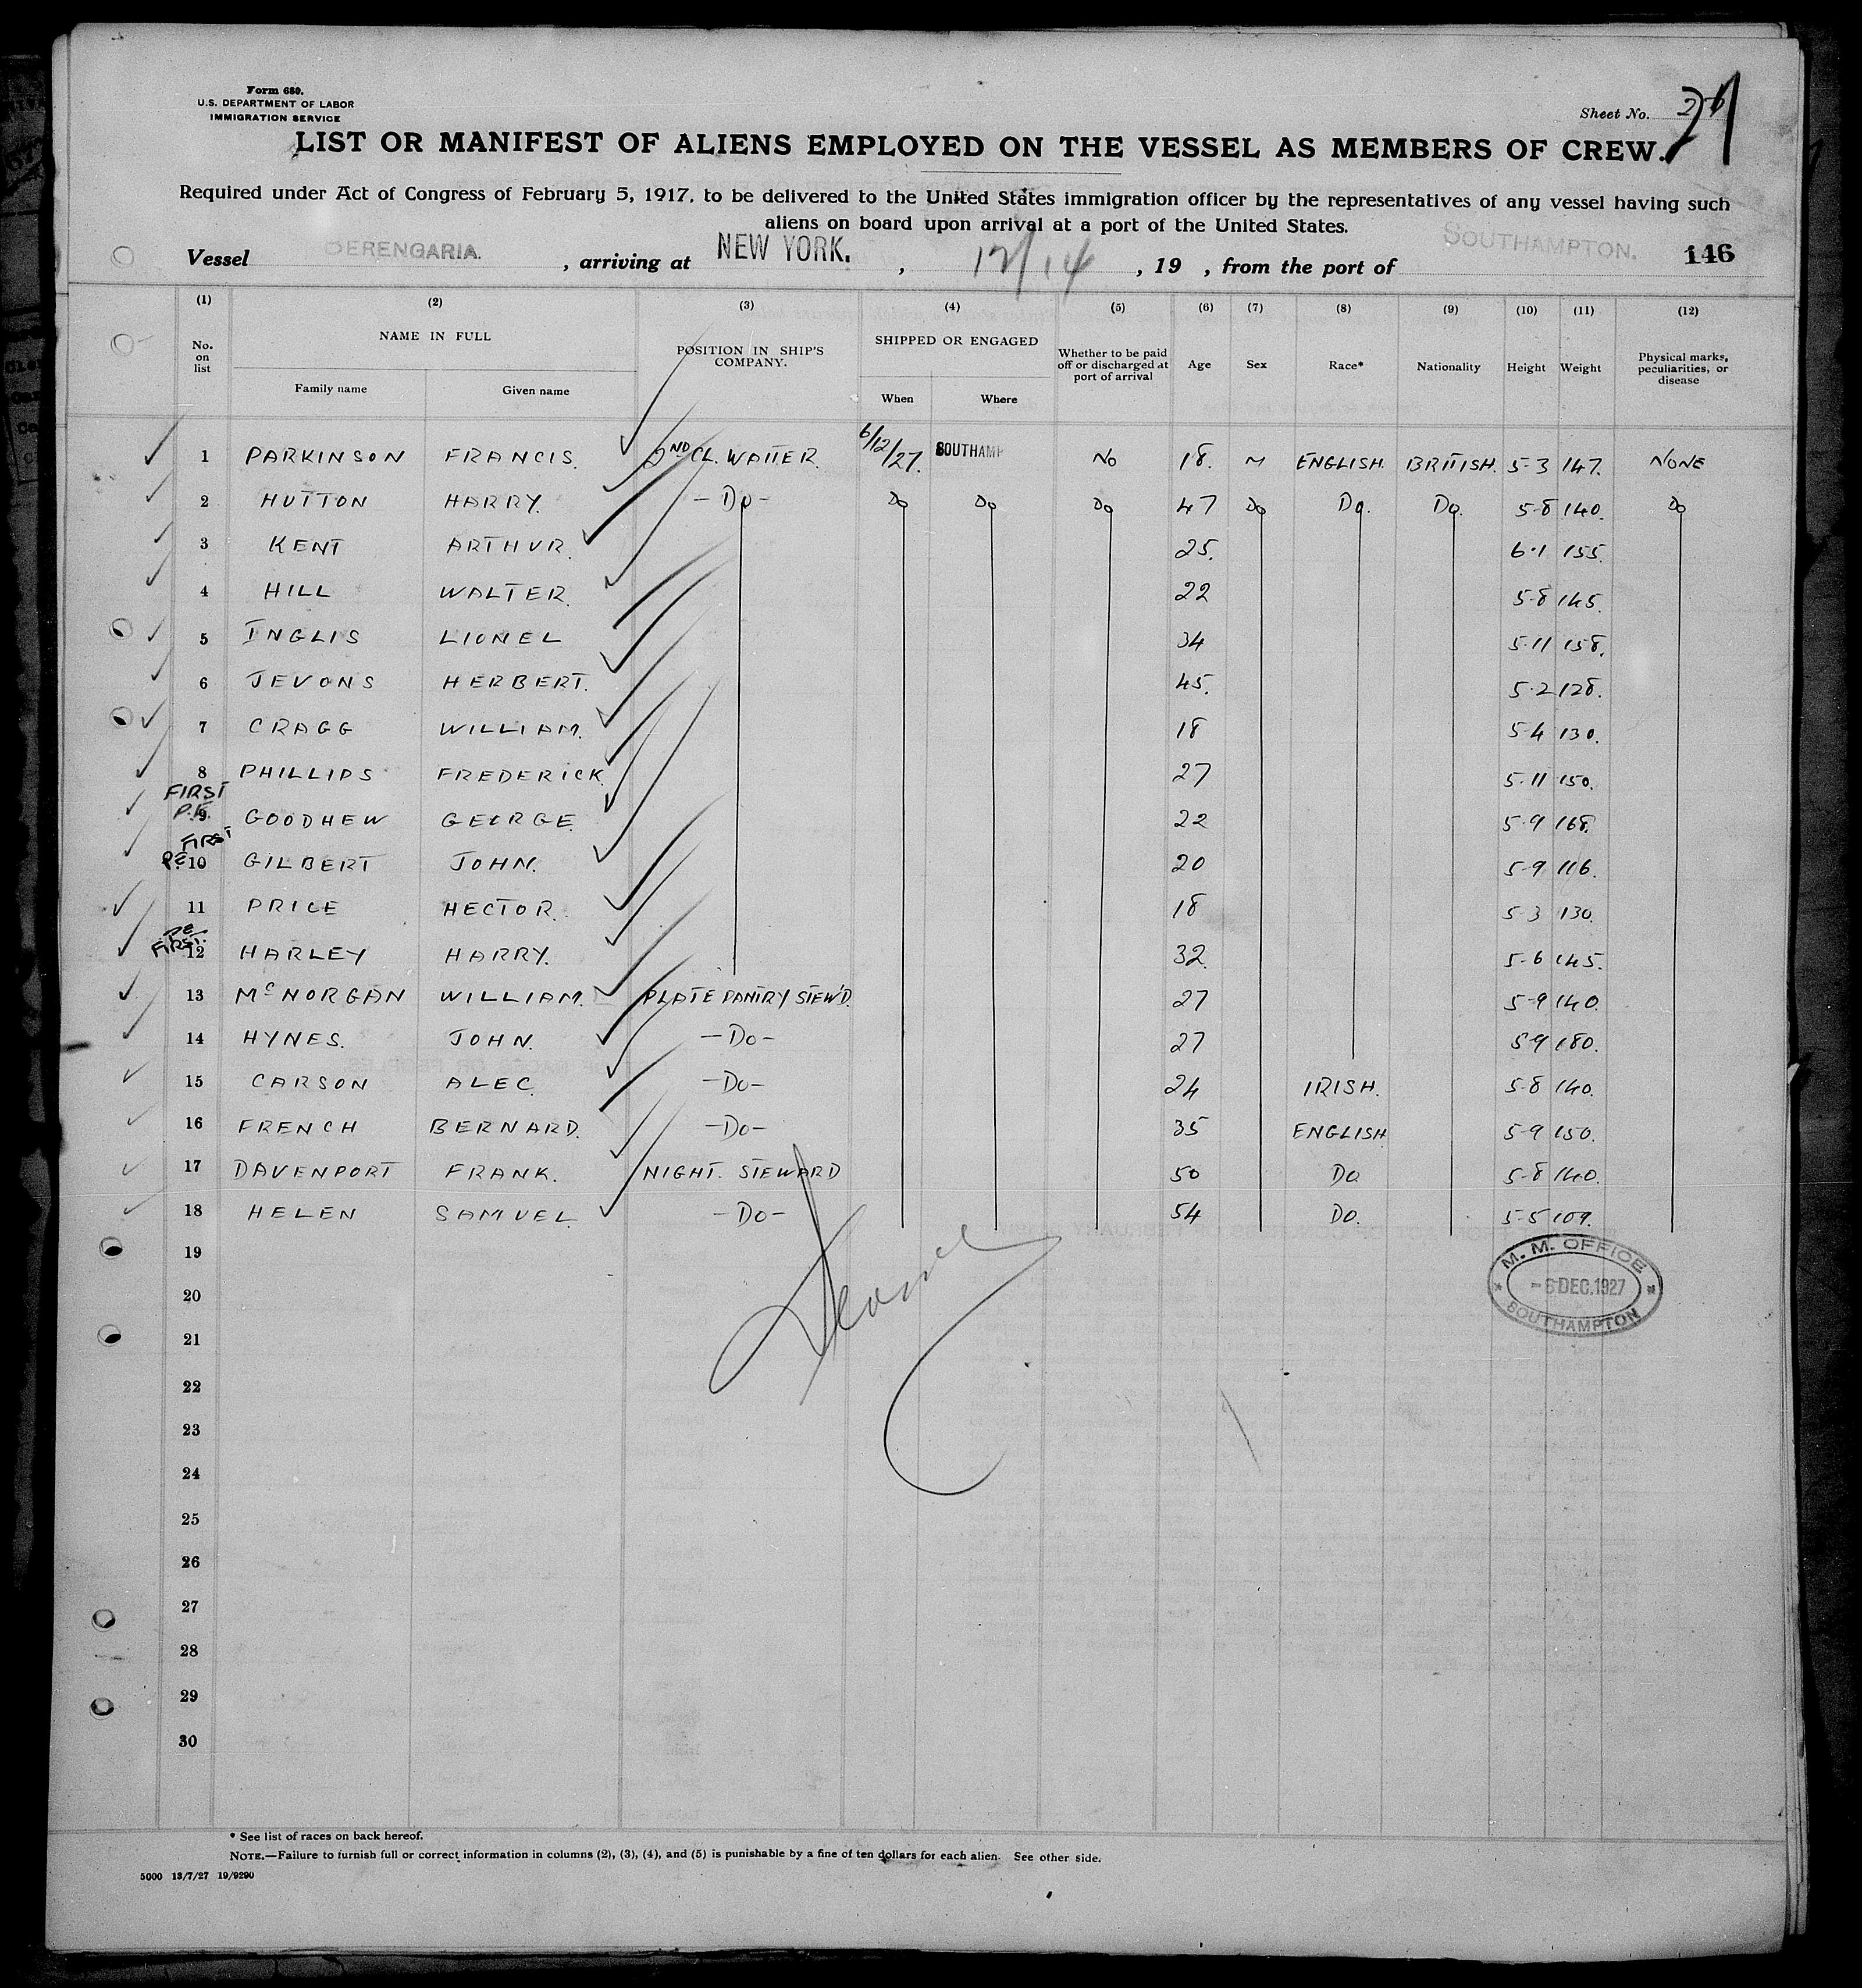 Form 680.
U.S. DEPARTMENT OF LABOR
IMMIGRATION SERVICE
Sheet No.
LIST OR MANIFEST OF ALIENS EMPLOYED ON THE VESSEL AS MEMBERS OF CREW.
Required under Act of Congress of February 5, 1917, to be delivered to the United States immigration officer by the representatives of any vessel having such
aliens on board upon arrival at a port of the United States.
Vessel BERENGARIA. , arriving at NEW YORK. , 12/14 , 19 , from the port of SOUTHAMPTON. 146
(1) (2) (3) (4) (5) (6) (7) (8) (9) (10) (11) (12)
No. on list NAME IN FULL POSITION IN SHIP'S COMPANY. SHIPPED OR ENGAGED Whether to be paid off or discharged at port of arrival Age Sex Race* Nationality Height Weight Physical marks, peculiarities, or disease
Family name Given name When Where
1 PARKINSON FRANCIS. 2ND CL. WAITER. 6/12/27. SOUTHAMP No 18. M ENGLISH. BRITISH. 5-3 147. NONE
2 HUTTON HARRY. -Do- Do Do Do 47 Do Do. Do. 5-8 140. Do
3 KENT ARTHUR. 25. 6-1 155.
4 HILL WALTER. 22 5-8 145.
5 INGLIS LIONEL 34 5-11 158.
6 JEVONS HERBERT. 45. 5-2 128.
7 CRAGG WILLIAM. 18 5-4 130.
8 PHILLIPS FREDERICK. 27 5-11 150.
FIRST P.E.
9 GOODHEW GEORGE. 22 5-9 168.
FIRST P.E.
10 GILBERT JOHN. 20 5-9 116.
11 PRICE HECTOR. 18 5-3 130.
P.E. FIRST.
12 HARLEY HARRY. 32. 5-6 145.
13 McNORGAN WILLIAM. PLATE PANTRY STEWD. 27 5-9 140.
14 HYNES. JOHN. -Do- 27 5-9 180.
15 CARSON ALEC. -Do- 24 IRISH. 5-8 140.
16 FRENCH BERNARD. -Do- 35 ENGLISH 5-9 150.
17 DAVENPORT FRANK. NIGHT. STEWARD 50 Do 5-8 140.
18 HELEN SAMUEL. -Do- 54 Do. 5-5 109.
19
20
21
22
23
24
25
26
27
28
29
30
M. M. OFFICE
-6 DEC. 1927
SOUTHAMPTON
* See list of races on back hereof.
NOTE.—Failure to furnish full or correct information in columns (2), (3), (4), and (5) is punishable by a fine of ten dollars for each alien. See other side.
5000 13/7/27 19/9290